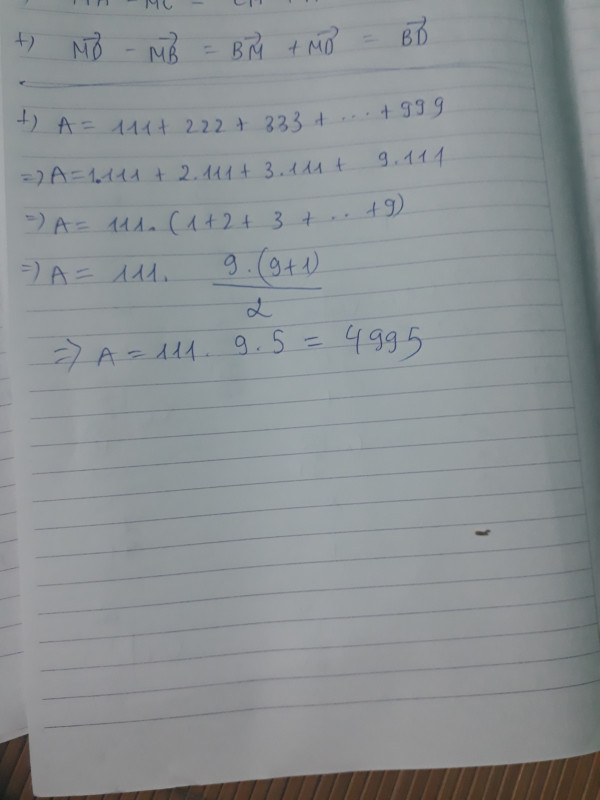 +) MD⃗ - MB⃗ = BM⃗ + MD⃗ = BD⃗
+) A = 111 + 222 + 333 + ... + 999
=> A = 1.111 + 2.111 + 3.111 + 9.111
=> A = 111. (1+2+ 3 + .. +9)
=> A = 111. 9.(9+1) / 2
=> A = 111. 9.5 = 4995